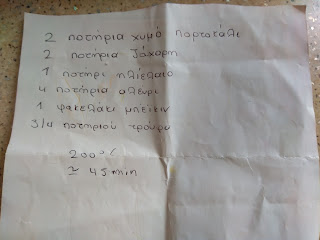 2 ποτήρια χυμό πορτοκάλι
2 ποτήρια Ζάχαρη
1 ποτήρι ηλιέλαιο
4 ποτήρια αλεύρι
1 φακελάκι μπέικιν
3/4 ποτηριού τρούφα
200°C
≃ 45 min